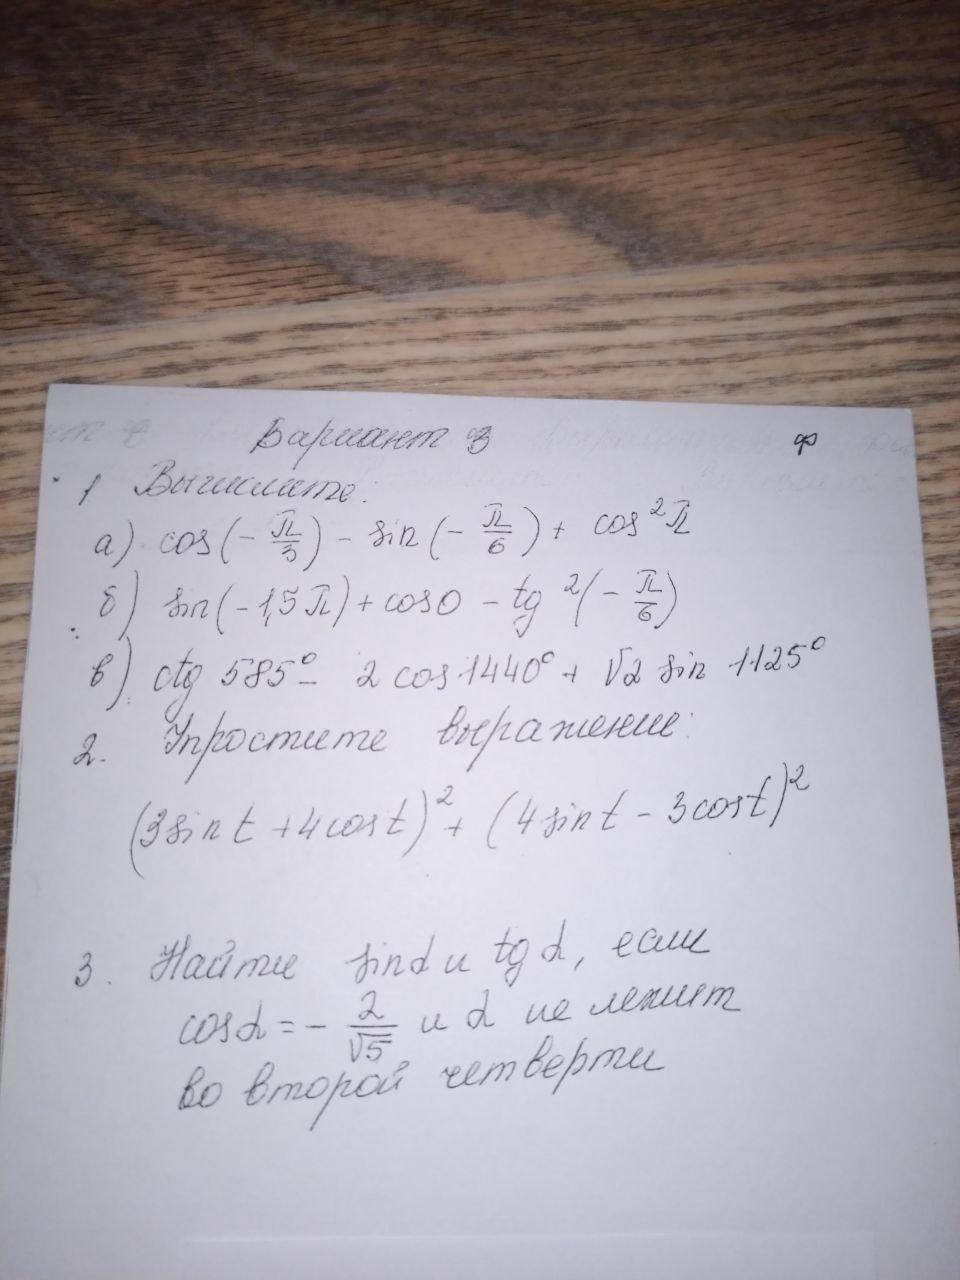 Вариант 3 ф
1 Вычислите:
а) cos(-π/3) - sin(-π/6) + cos²π
б) sin(-1,5π) + cos0 - tg²(-π/6)
в) ctg 585° - 2 cos 1440° + √2 sin 1125°
2. Упростите выражение:
(3sin t + 4cos t)² + (4sin t - 3cost)²
3. Найти sinα и tg α, если
cosα = - 2/√5 и α не лежит
во второй четверти